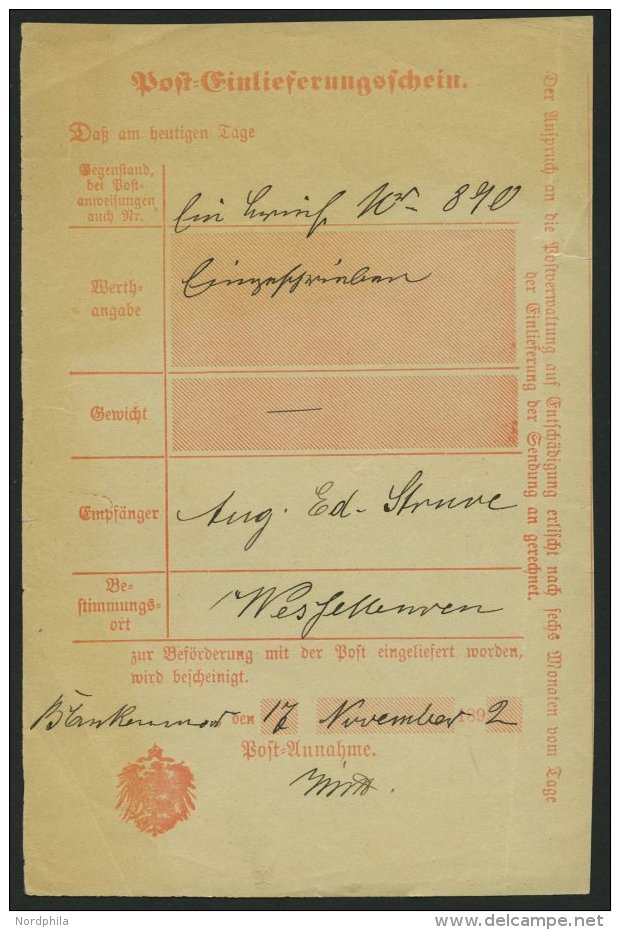 Post-Einlieferungsschein.
Daß am heutigen Tage
Gegenstand,
bei Post-
anweisungen
auch Nr.
Ein Brief Nr 890
Werth-
angabe
Eingeschrieben
Gewicht
—
Empfänger
Aug. Ed. Struve
Be-
stimmungs-
ort
Wesselburen
zur Beförderung mit der Post eingeliefert worden,
wird bescheinigt.
den 17 November 1892
Post-Annahme.
Der Anspruch an die Postverwaltung auf Entschädigung erlischt nach sechs Monaten vom Tage
der Einlieferung der Sendung an gerechnet.
Nordphila
delcampe.net